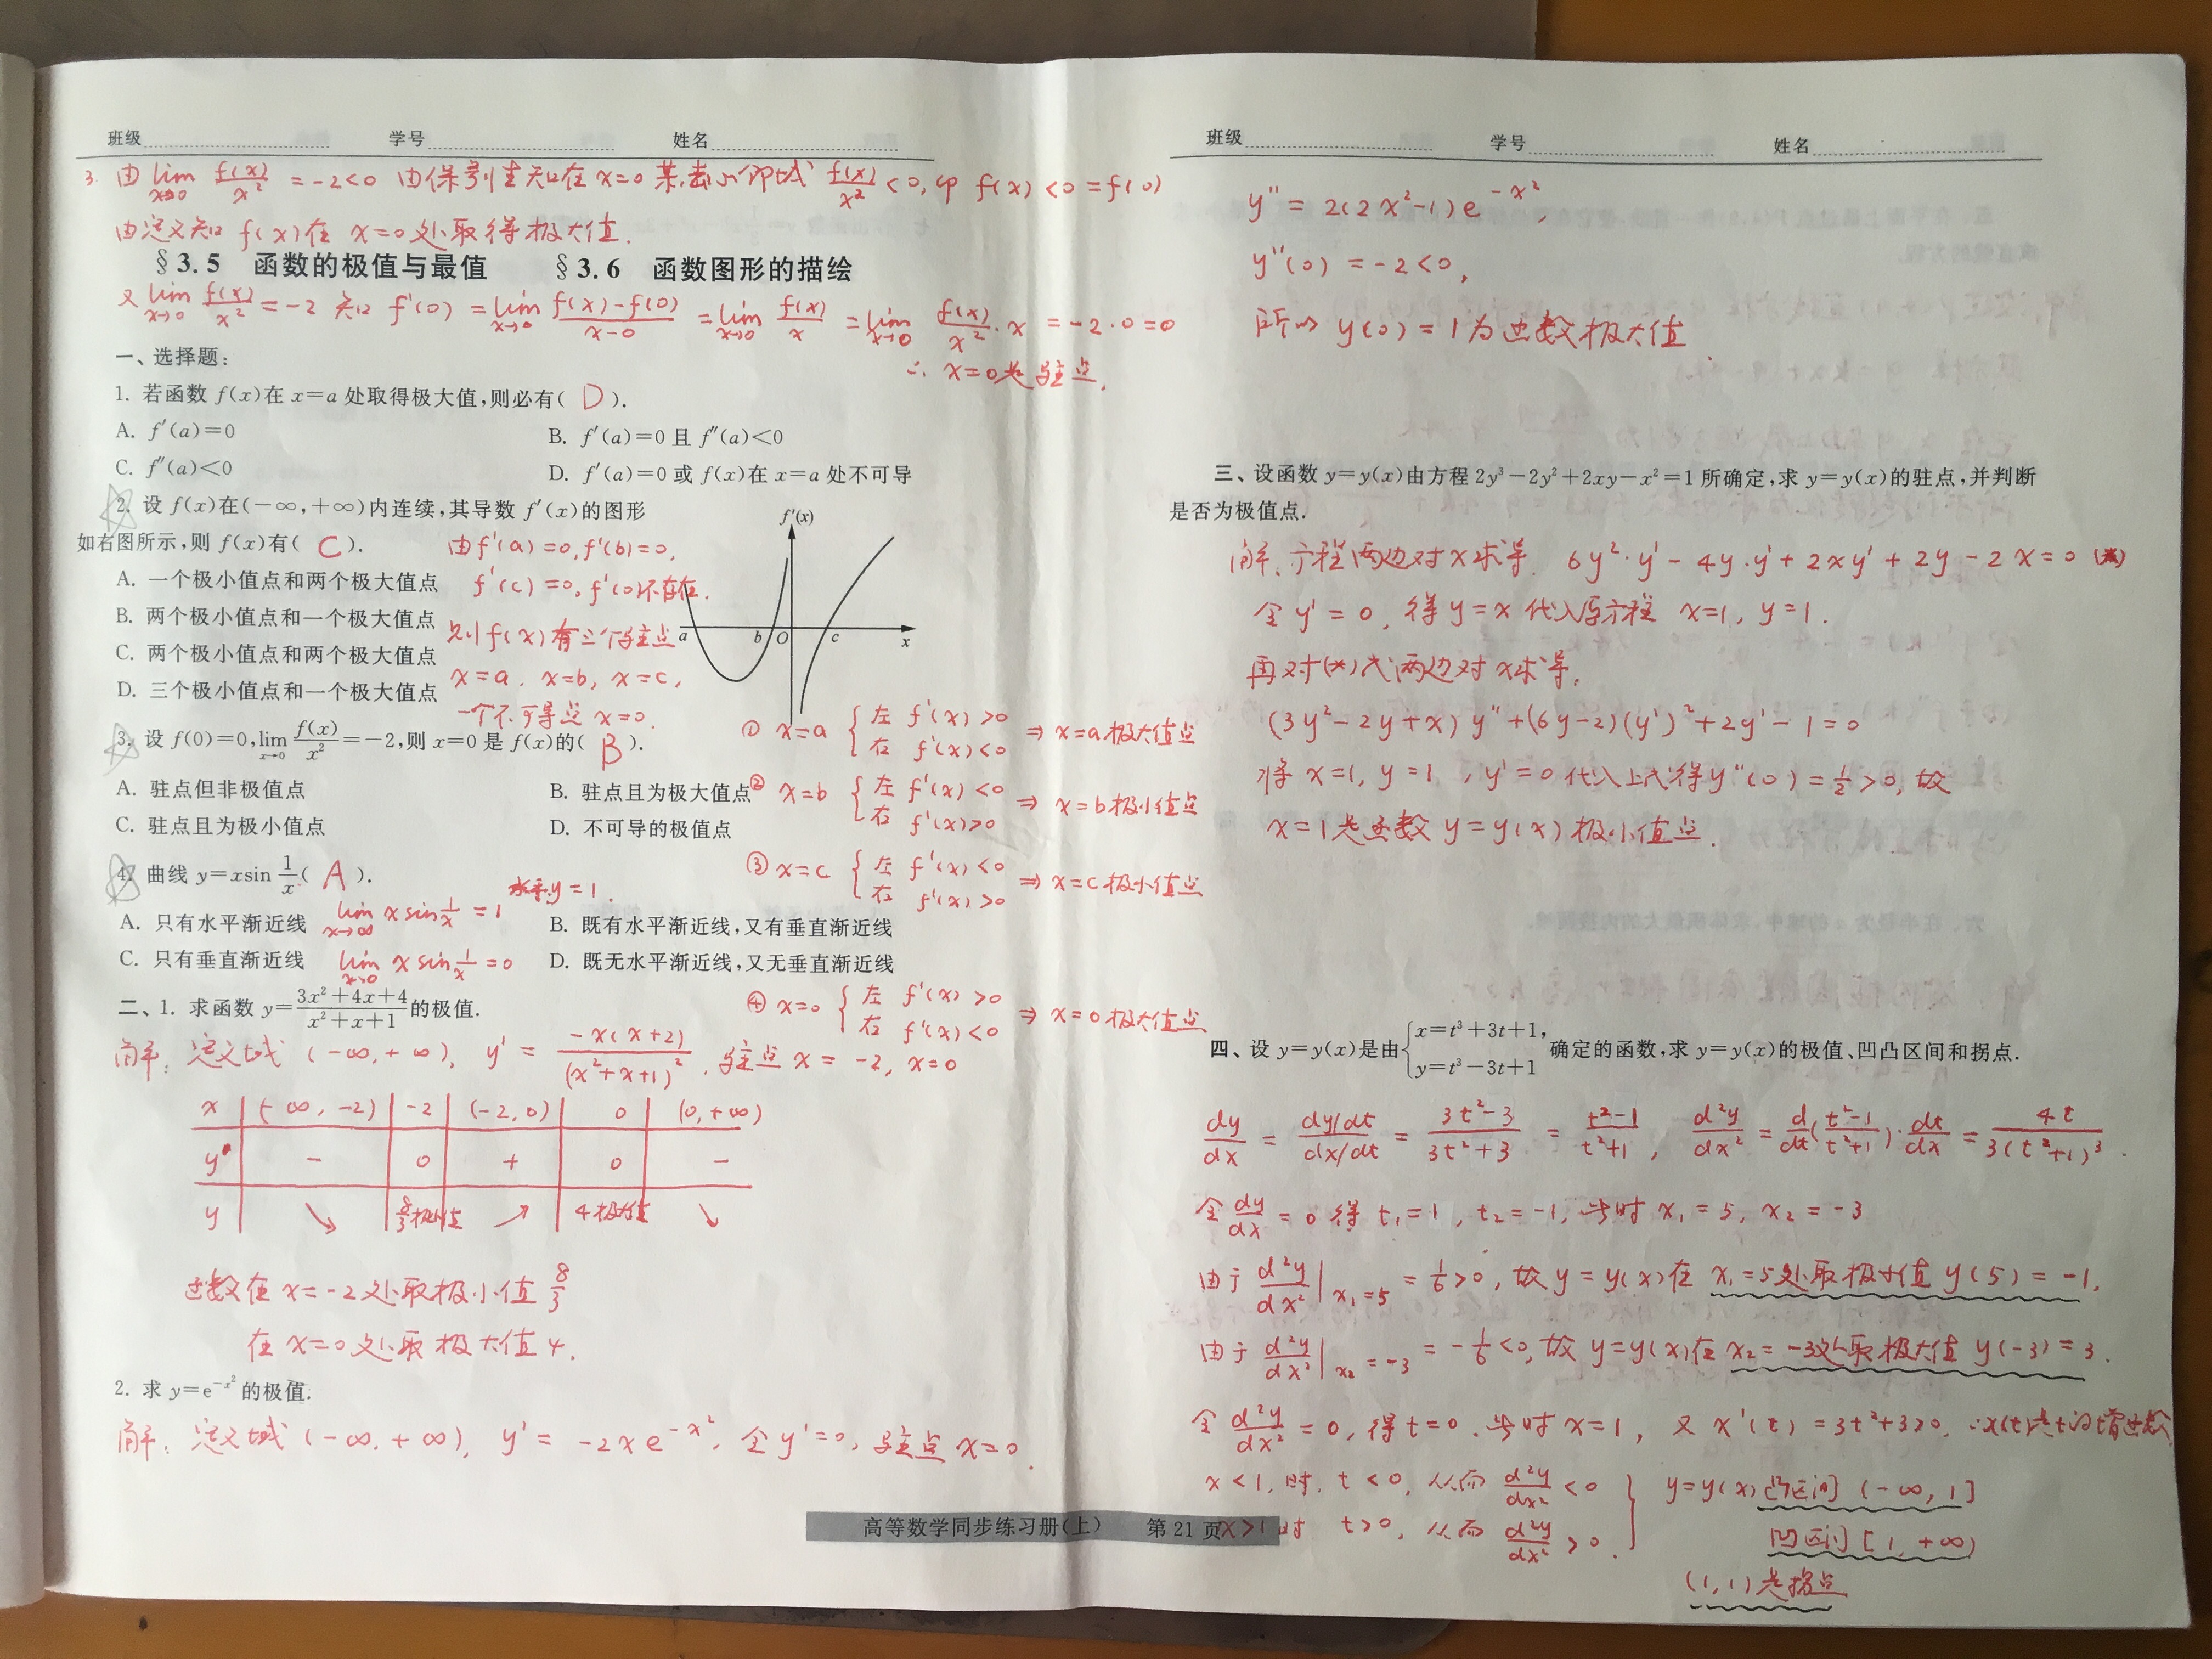 班级 学号 姓名
3. 由 lim x→0 f(x)/x² = -2<0 由保号性知在 x=0 某去心邻域 f(x)/x² <0, 即 f(x)<0=f(0)
由定义知 f(x)在 x=0处取得极大值.
§3.5 函数的极值与最值 §3.6 函数图形的描绘
又 lim x→0 f(x)/x² = -2 知 f'(0) = lim x→0 (f(x)-f(0))/(x-0) = lim x→0 f(x)/x = lim x→0 f(x)/x² · x = -2·0=0
∴ x=0是驻点.
一、选择题:
1. 若函数 f(x)在 x=a 处取得极大值,则必有( D ).
A. f′(a)=0 B. f′(a)=0 且 f″(a)<0
C. f″(a)<0 D. f′(a)=0 或 f(x)在 x=a 处不可导
2. 设 f(x)在(-∞,+∞)内连续,其导数 f′(x)的图形
如右图所示,则 f(x)有( C ).
A. 一个极小值点和两个极大值点
B. 两个极小值点和一个极大值点
C. 两个极小值点和两个极大值点
D. 三个极小值点和一个极大值点
由f'(a)=0, f'(b)=0,
f'(c)=0, f'(0)不存在.
则f(x)有三个驻点
x=a, x=b, x=c,
一个不可导点 x=0.
f′(x)
a b O c x
① x=a { 左 f'(x)>0 右 f'(x)<0 ⇒ x=a极大值点
② x=b { 左 f'(x)<0 右 f'(x)>0 ⇒ x=b极小值点
③ x=c { 左 f'(x)<0 右 f'(x)>0 ⇒ x=c极小值点
④ x=0 { 左 f'(x)>0 右 f'(x)<0 ⇒ x=0极大值点
3. 设 f(0)=0, lim x→0 f(x)/x² =-2,则 x=0 是 f(x)的( B ).
A. 驻点但非极值点 B. 驻点且为极大值点
C. 驻点且为极小值点 D. 不可导的极值点
4. 曲线 y=xsin 1/x ( A ).
A. 只有水平渐近线 lim x→∞ x sin 1/x = 1 水平y=1. B. 既有水平渐近线,又有垂直渐近线
C. 只有垂直渐近线 lim x→0 x sin 1/x = 0 D. 既无水平渐近线,又无垂直渐近线
二、1. 求函数 y=(3x²+4x+4)/(x²+x+1) 的极值.
解: 定义域 (-∞,+∞), y' = -x(x+2)/(x²+x+1)², 驻点 x=-2, x=0
x (-∞,-2) -2 (-2,0) 0 (0,+∞)
y' - 0 + 0 -
y ↘ 8/3极小值 ↗ 4极大值 ↘
函数在 x=-2处取极小值 8/3
在 x=0处取极大值 4.
2. 求 y=e^(-x²) 的极值.
解: 定义域 (-∞,+∞), y' = -2xe^(-x²), 令 y'=0, 驻点 x=0.
高等数学同步练习册(上) 第 21 页
班级 学号 姓名
y" = 2(2x²-1)e^(-x²),
y"(0) = -2<0,
所以 y(0)=1为函数极大值.
三、设函数 y=y(x)由方程 2y³-2y²+2xy-x²=1 所确定,求 y=y(x)的驻点,并判断
是否为极值点.
解: 方程两边对x求导, 6y²·y' - 4y·y' + 2xy' + 2y - 2x = 0 (*)
令 y'=0, 得 y=x 代入原方程 x=1, y=1.
再对(*)式两边对 x求导,
(3y²-2y+x)y"+(6y-2)(y')²+2y'-1=0
将 x=1, y=1, y'=0 代入上式得y"(0)=1/2>0, 故
x=1是函数 y=y(x)极小值点.
四、设 y=y(x)是由 { x=t³+3t+1, y=t³-3t+1 确定的函数,求 y=y(x)的极值、凹凸区间和拐点.
dy/dx = (dy/dt)/(dx/dt) = (3t²-3)/(3t²+3) = (t²-1)/(t²+1), d²y/dx² = d/dt((t²-1)/(t²+1))·dt/dx = 4t/(3(t²+1)³).
令 dy/dx = 0 得 t₁=1, t₂=-1, 当时 x₁=5, x₂=-3
由于 d²y/dx²|x₁=5 = 1/6>0, 故 y=y(x)在 x₁=5处取极小值 y(5)=-1,
由于 d²y/dx²|x₂=-3 = -1/6<0, 故 y=y(x)在 x₂=-3处取极大值 y(-3)=3.
令 d²y/dx²=0, 得t=0. 当时 x=1, 又 x'(t)=3t²+3>0, ∴x(t)是t的增函数
x<1, 时, t<0, 从而 d²y/dx² <0 } y=y(x)凸区间 (-∞,1]
x>1时 t>0, 从而 d²y/dx² >0. 凹区间 [1,+∞)
(1,1)是拐点